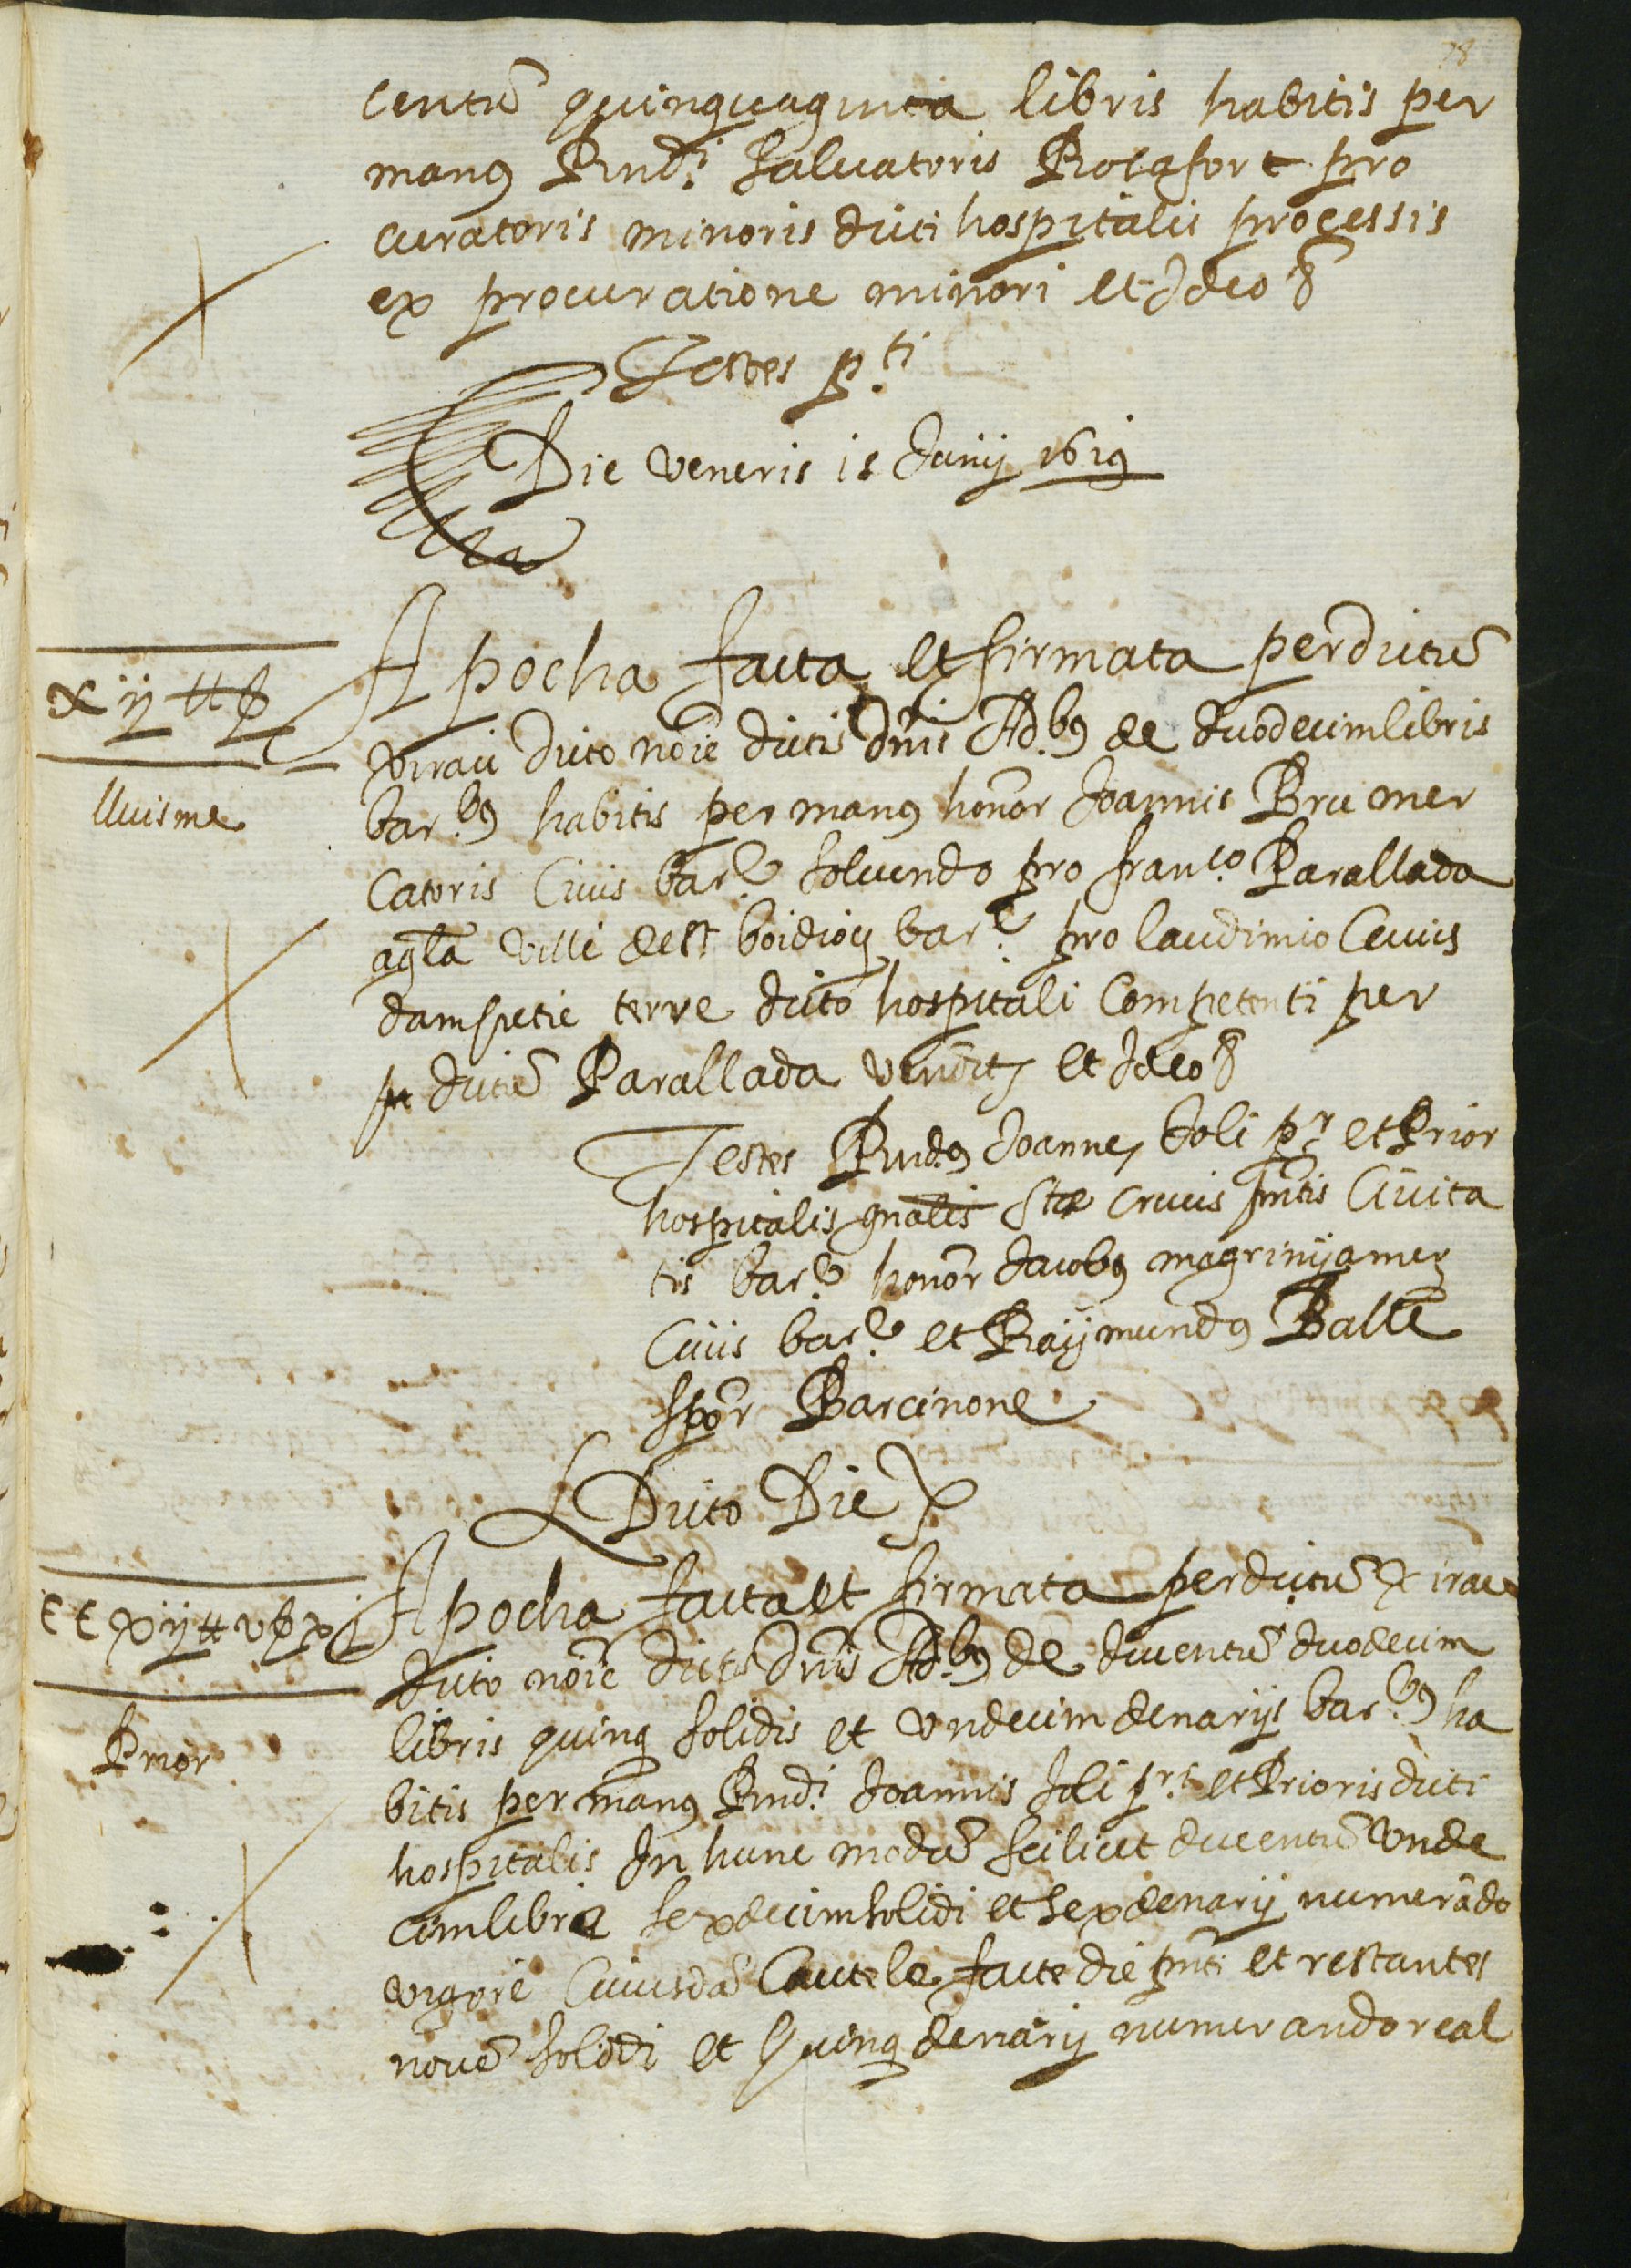 78
centũ quinquaginta libris habitis per
manꝰ Rndi. Saluatoris Rocafort pro
curatoris minoris dicti hospitalis processis
ex procuratione minori et Ideo &
Testes p.ti
Die veneris 15 Junij 1619
Apocha facta et firmata per dictũ
xij ₶ ß
virau dicto noie dictis dnis Ad.bꝰ de duodecim libris
lluisme
bar.bꝰ habitis per manꝰ honor Joannis Bru mer
catoris Ciuis bar.e soluendo pro franco. Parallada
agla ville de st boi dioc bar.e pro laudimio Cuius
dam petie terre dicto hospitali Competenti per
dictũ Parallada vendit et Ideo &
Testes Rndꝰ Joannes Soli pr. et Prior
hospitalis gnalis Stæ Crucis pntis Ciuita
tis bar.e honor Jacobꝰ magrinya mer
Ciuis bar.e et Raymundꝰ Balle
spor Barcinone
Dicto Die
Apocha facta et firmata per dictũ virau
CCxij ₶ v ß xj
dicto noie dictis Dnis Ad.bꝰ de ducentũ duodecim
libris quinq solidis et vndecim denarijs bar.bꝰ ha
Prior
bitis per manꝰ Rndi. Joannis Soli pri. et Prioris dicti
hospitalis In hunc modũ scilicet ducentũ vnde
cim libre sexdecim solidi et sex denarij numerãdo
vigore Cuiusdã Cautele facte die pnti et restantes
nouẽ solidi et quinq denarij numerando real